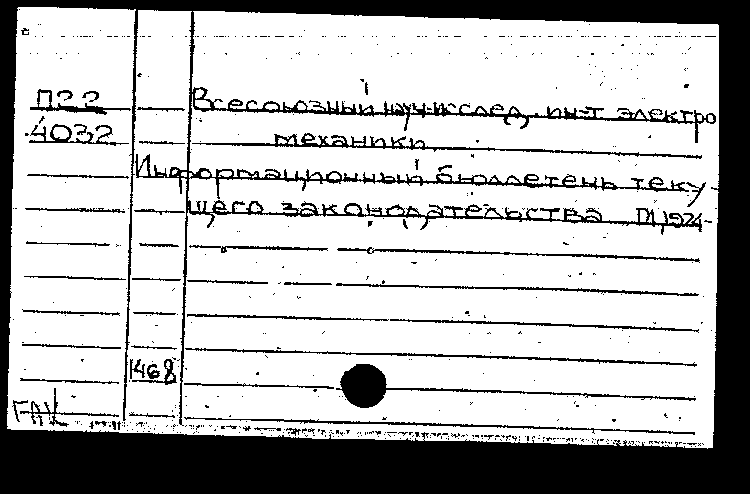 П22
4032
Всесоюзный науч-исслед. ин-т электро
механики.
Информационный бюллетень теку-
щего законодательства
1468